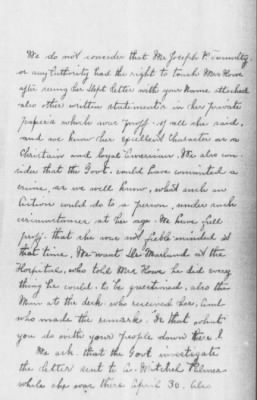 We do not consider that Mr Joseph P. Tumulty
or any Authority had the right to touch Mrs Howe
after seeing her Dept letter with your Name attached
also other written statements in her private
papers which was proff of all she said,
and we know her spelled Character as a
Christian and loyal American. We also con-
sider that the Govt. would have committed a
crime, as we well know, what such an
action would do to a person, under such
circumstances at her age. We have full
proff. that she was not feeble-minded at
that time. We want Dr Marland at the
Hospital, who told Mrs Howe he did every
thing he could. to be questioned, also the
Man at the desk who received her, and
who made the remark. "Is that what
you do with your people down there?
We ask. that the Govt investigate
the letter sent to A. Mitchel Palmer
while she was there April 30. Also